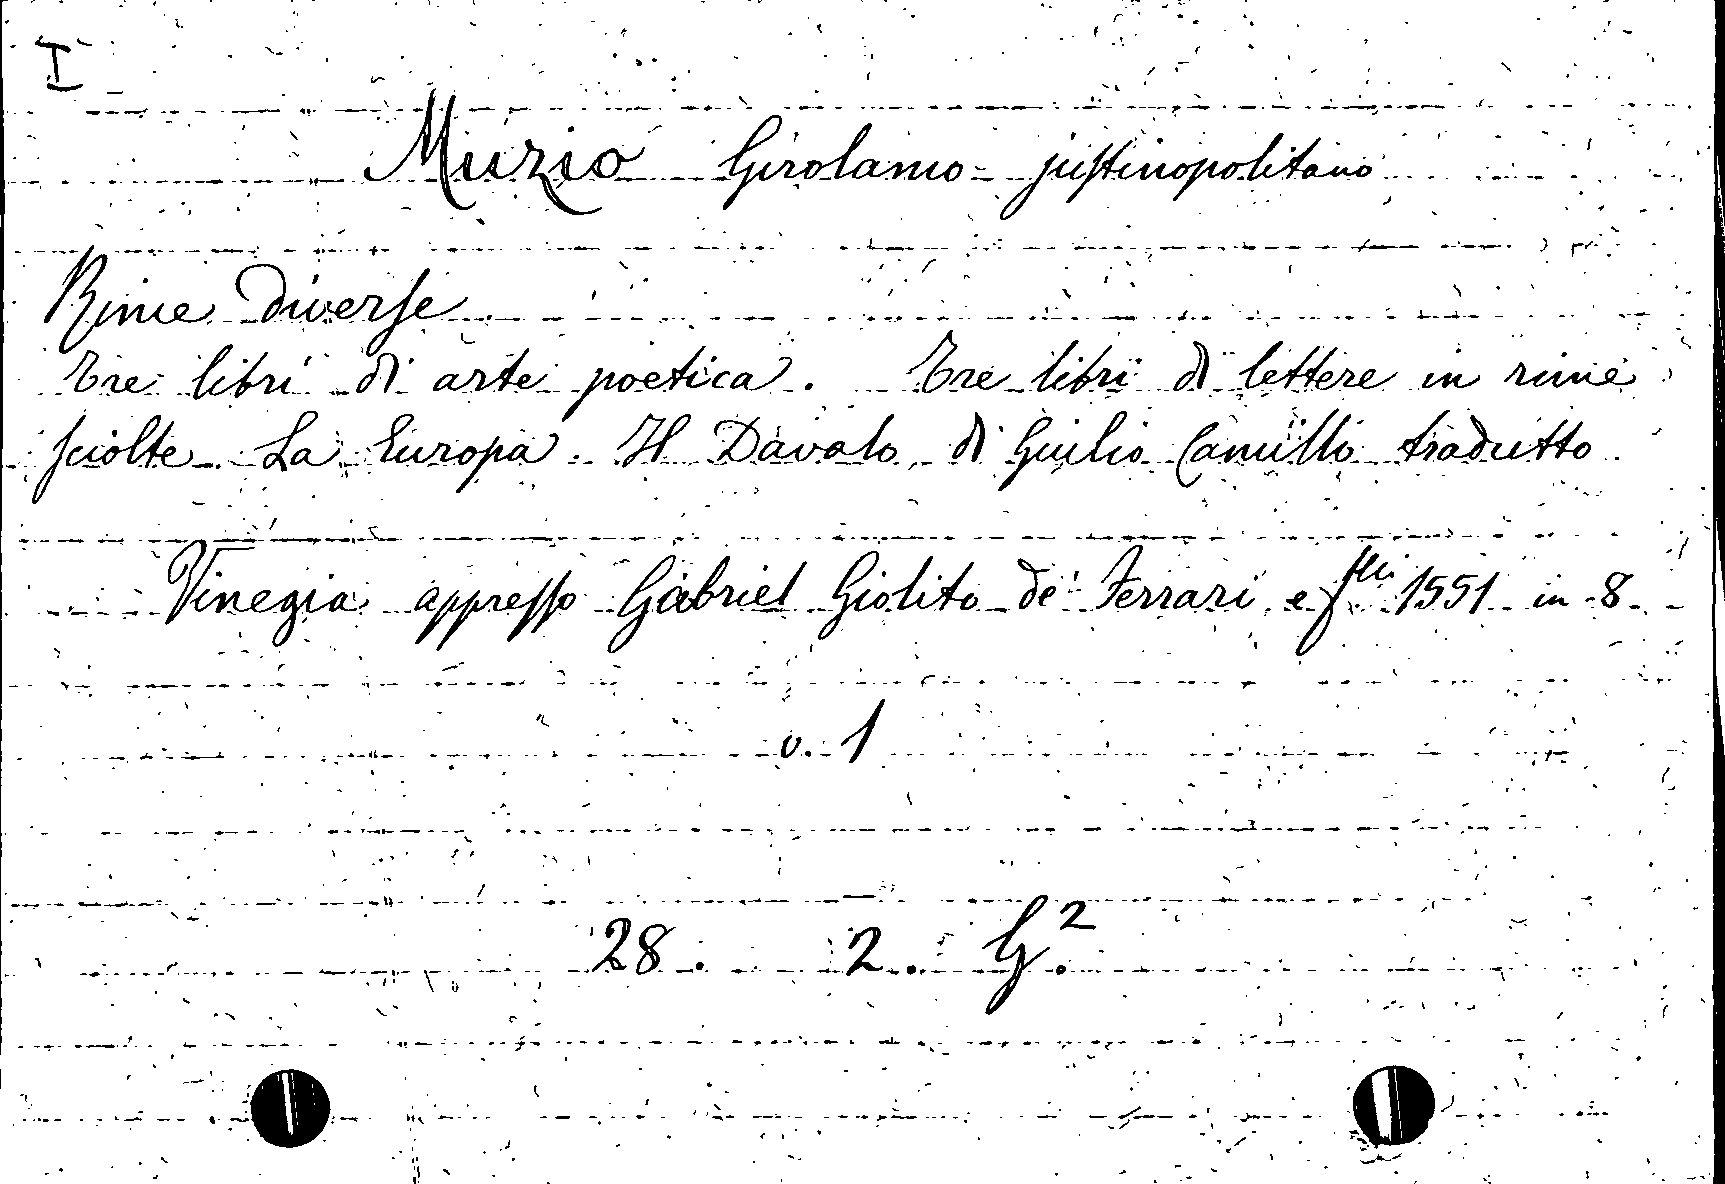 I
Muzio Girolamo justinopolitano
Rime diverse
Tre libri di arte poetica. Tre libri di lettere in rime
sciolte. La Europa. Il Davalo di Guilio Camillo tradutto
Vinegia appresso Gabriel Giolito de Ferrari e flli 1551 in 8
v. 1
28. 2. G.2